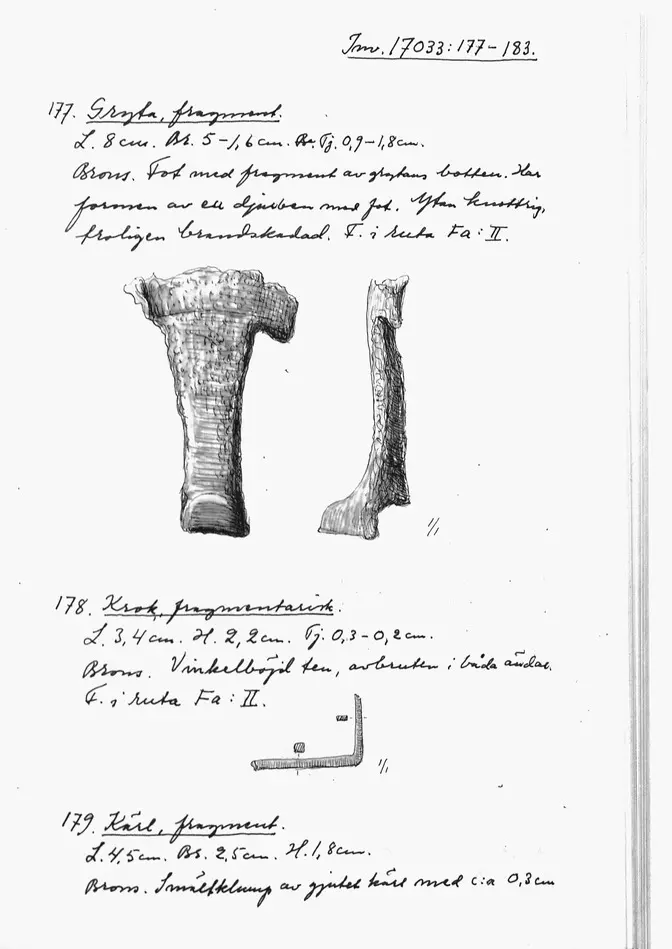 Inv. 17033:177-183.
177. Gryta, fragment.
L. 8 cm. Br. 5-1,6 cm. Tj. 0,9-1,8 cm.
Brons. Fot med fragment av grytans botten. Har
formen av ett djurben med fot. Ytan knottrig,
troligen brandskadad. F. i ruta Fa: II.
1/1
178. Krok, fragmentarisk.
L. 3,4 cm. H. 2,2 cm. Tj. 0,3-0,2 cm.
Brons. Vinkelböjd ten, avbruten i båda ändar.
F. i ruta Fa: II.
1/1
179. Kärl, fragment.
L. 4,5 cm. Br. 2,5 cm. H. 1,8 cm.
Brons. Smältklump av gjutet kärl med c:a 0,3 cm